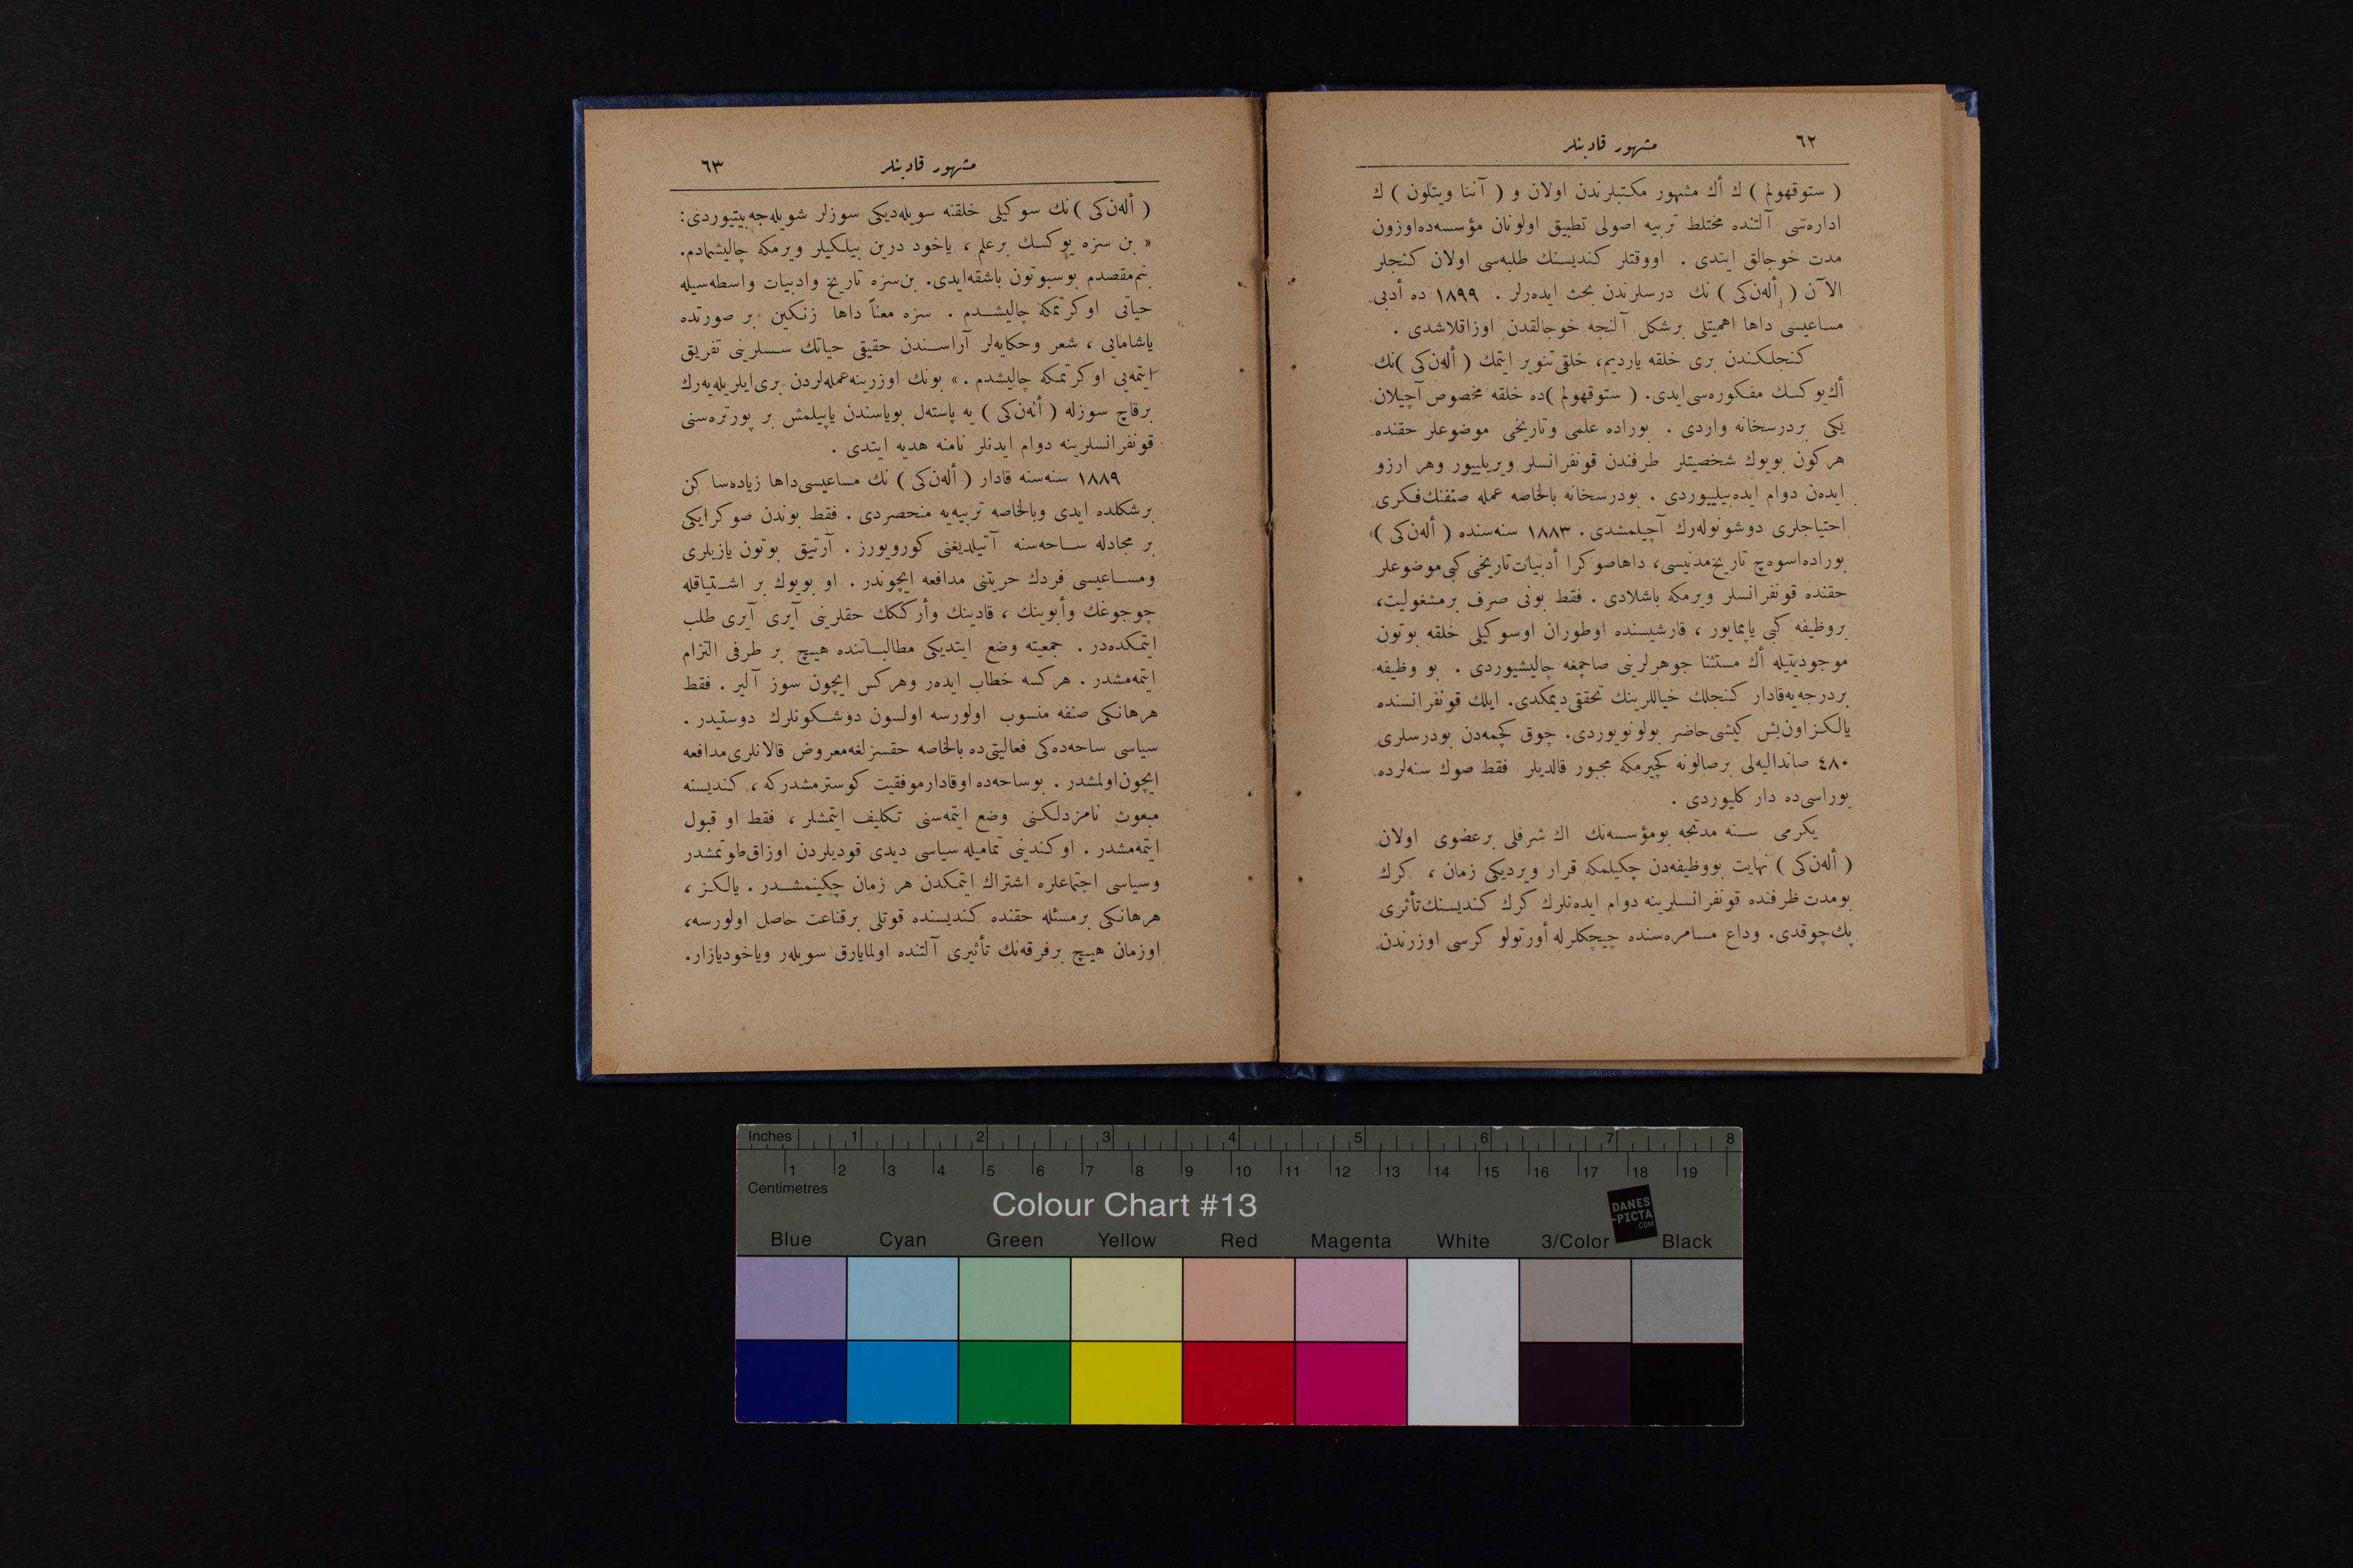 ٦٢
مشهور قادینلر
( ستوقهولم ) ك أك مشهور مكتبلرندن اولان و ( آننا ویتلون ) ك
اداره‌سی آلتنده مختلط تربیه اصولی تطبیق اولونان مؤسسه‌ده‌اوزون
مدت خوجالق ایتدی . اووقتلر كندیسنك طلبه‌سی اولان كنجلر
الآن ( أله‌ن‌كی ) نك درسلرندن بحث ایده‌رلر . ١٨٩٩ ده أدبی
مساعیسی داها اهمیتلی برشكل آلنجه خوجالقدن اوزاقلاشدی .
كنجلكندن بری خلقه یاردیم، خلقی تنویر ایتمك ( أله‌ن‌كی )نك
أك‌یوكسك مفكوره‌سی‌ایدی. ( ستوقهولم )ده خلقه مخصوص آچیلان
یكی بردرسخانه واردی . بوراده علمی وتاریخی موضوعلر حقنده
هركون بویوك شخصیتلر طرفندن قونفرانسلر ویریلییور وهر ارزو
ایده‌ن دوام ایده‌بیلییوردی . بودرسخانه بالخاصه عمله صنفنك‌فكری
احتیاجلری دوشونوله‌رك آچیلمشدی . ١٨٨٣ سنه‌سنده ( أله‌ن‌كی )
بوراده‌اسوه‌چ تاریخ‌مدنیسی، داهاصوكرا أدبیات‌تاریخی كبی‌موضوعلر
حقنده قونفرانسلر ویرمكه باشلادی . فقط بونی صرف برمشغولیت،
بروظیفه كبی یاپمایور ، قارشیسنده اوطوران اوسوكیلی خلقه بوتون
موجودیتیله أك مستثنا جوهرلرینی صاچمغه چالیشیوردی . بو وظیفه
بردرجه‌یه‌قادار كنجلك خیاللرینك تحققی‌دیمكدی. ایلك قونفرانسنده
یالكزاون‌بش كیشی‌حاضر بولونویوردی. چوق كچمه‌دن بودرسلری
٤٨٠ صاندالیه‌لی برصالونه كچیرمكه مجبور قالدیلر فقط صوك سنه‌لرده
بوراسی‌ده دار كلیوردی .
یكرمی سنه مدتجه بومؤسسه‌نك اك شرفلی برعضوی اولان
( أله‌ن‌كی ) نهایت بووظیفه‌دن چكیلمكه قرار ویردیكی زمان ، كرك
بومدت ظرفنده قونفرانسلرینه دوام ایده‌نلرك كرك كندیسنك‌تأثری
پك‌چوقدی. وداع مسامره‌سنده چیچكلرله أورتولو كرسی اوزرندن
مشهور قادینلر
٦٣
( أله‌ن‌كی )نك سوكیلی خلقنه سویله‌دیكی سوزلر شویله‌جه‌بیتیوردی:
« بن سزه یوكسك برعلم ، یاخود درین بیلكیلر ویرمكه چالیشمادم.
بنم‌مقصدم بوسبوتون باشقه‌ایدی. بن‌سزه تاریخ وادبیات واسطه‌سیله
حیاتی اوكرتمكه چالیشدم . سزه معناً داها زنكین بر صورتده
یاشامایی ، شعر وحكایه‌لر آراسندن حقیقی حیاتك سسلرینی تفریق
ایتمه‌یی اوكرتمكه چالیشدم .» بونك اوزرینه‌عمله‌لردن بری‌ایلریله‌یه‌رك
برقاچ سوزله ( أله‌ن‌كی ) یه پاسته‌ل بویاسندن یاپیلمش بر پورتره‌سنی
قونفرانسلرینه دوام ایدنلر نامنه هدیه ایتدی .
١٨٨٩ سنه‌سنه قادار ( أله‌ن‌كی ) نك مساعیسی‌داها زیاده‌ساكن
برشكلده ایدی وبالخاصه تربیه‌یه منحصردی . فقط بوندن صوكراییكی
بر مجادله ساحه‌سنه آتیلدیغنی كورویورز . آرتیق بوتون یازیلری
ومساعیسی فردك حریتنی مدافعه ایچوندر . او بویوك بر اشتیاقله
چوجوغك وأبوینك ، قادینك وأرككك حقلرینی آیری آیری طلب
ایتمكده‌در . جمعیته وضع ایتدیكی مطالباتنده هیچ بر طرفی التزام
ایتمه‌مشدر . هركسه خطاب ایده‌ر وهركس ایچون سوز آلیر . فقط
هرهانكی صنفه منسوب اولورسه اولسون دوشكونلرك دوستیدر .
سیاسی ساحه‌ده‌كی فعالیتی‌ده بالخاصه حقسزلغه‌معروض قالانلری‌مدافعه
ایچون‌اولمشدر . بوساحه‌ده اوقادارموفقیت كوسترمشدركه ، كندیسنه
مبعوث نامزدلكنی وضع ایتمه‌سنی تكلیف ایتمشلر ، فقط او قبول
ایتمه‌مشدر . اوكندینی تمامیله سیاسی دیدی قودیلردن اوزاق‌طوتمشدر
وسیاسی اجتماعلره اشتراك ایتمكدن هر زمان چكینمشدر . یالكز ،
هرهانكی برمسئله حقنده كندیسنده قوتلی برقناعت حاصل اولورسه،
اوزمان هیچ برفرقه‌نك تأثیری آلتنده اولمایارق سویلر ویاخودیازار.
Inches 1 2 3 4 5 6 7 8
1 2 3 4 5 6 7 8 9 10 11 12 13 14 15 16 17 18 19
Centimetres
Colour Chart #13
DANES
-PICTA
.COM
Blue Cyan Green Yellow Red Magenta White 3/Color Black